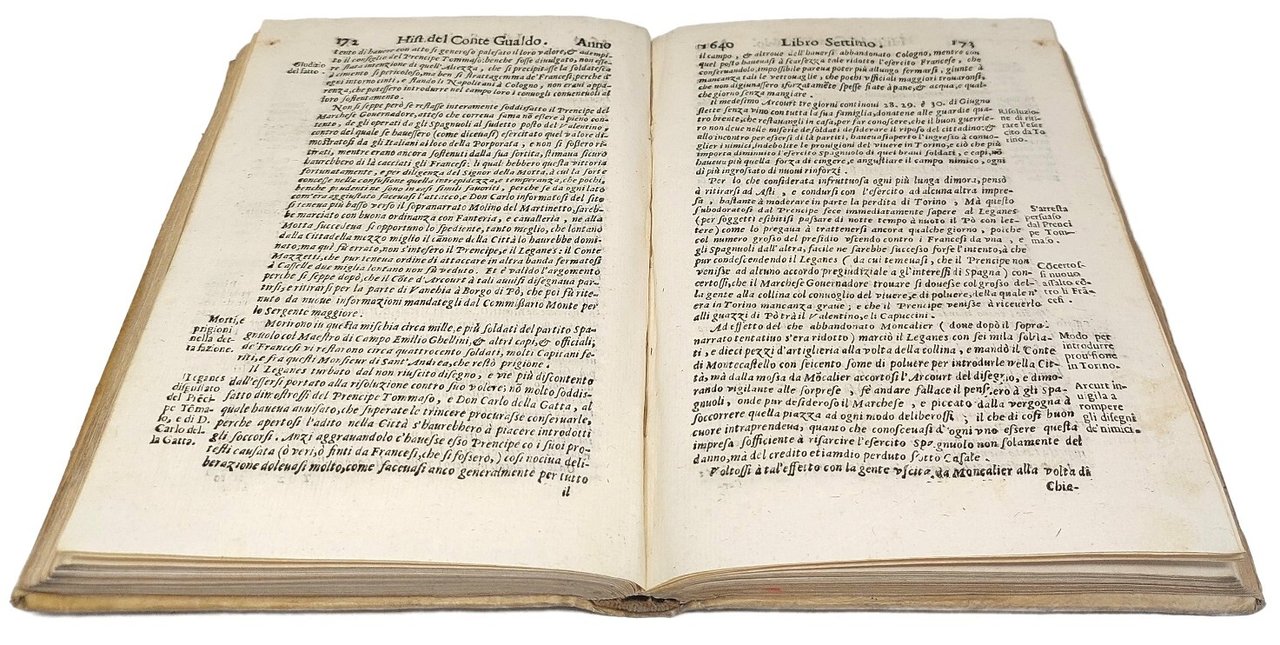 172 Hist. del Conte Gualdo. Anno
tento di hauere con atto si generoso palesato il loro valore, & adempi-
to il consiglio del Prencipe Tommaso; benche fosse divulgato, non esse-
Giudizio
del fatto.
re stata intenzione di quell'Altezza, che si precipitasse la soldatesca
à cimento si pericoloso, ma ben si strattagemma de' Francesi; perche d'
ogni intorno cinti, e stando li Napolitani à Cologno, non erani appa-
renza, che potessero introdurre nel campo loro i conuogli conueneuoli al
loro sostentamento.
Non si seppe però se restasse interamente soddisfatto il Prencipe del
Marchese Gouernadore, atteso che correua fama nõ essere à pieno con-
tento, de gli operati dagli Spagnuoli al sudetto posto del Valentino,
contro del quale se hauessero (come diceuasi) esercitato quel valore di-
mostrato da gli Italiani al loco della Porporata, e non si fossero ri-
tirati, mentre erano ancora sostenuti dalla sua sortita, stimaua sicuro
haurebbero di là cacciati gli Francesi: li qual hebbero questa vittoria
fortunatamente, e per diligenza del Signor della Motta, à cui la sorte
concesse nella confusione quella intrepidezza, e temperanza, che pochi,
benche prudenti ne sono in casi simili saporiti, perche se da ogni lato
com'era aggiustato facevasi l'attacco, e Don Carlo informatosi del sito
si teneua più basso verso il sopranarrato Molino del Martinetto, sareb-
be marciato con buona ordinanza con Fanteria, e caualleria, ne alla
Motta succedeua si opportuno lo spediente, tanto meglio, che lontano
dalla Cittadella mezzo miglio il cãnone della Città lo haurebbe domi-
nato; ma quì sù errato, non s'intesero il Prencipe, e il Leganes: il Conte
Mazzetti, che pur teneua ordine di attaccare in altra banda fermatosi
à Caselle due miglia lontano non fù veduto. Et è valido l'argomento
perche si seppe dopò, che il Cõte d'Arcourt à tali anuisi disegnaua par-
tirsi, e ritirarsi per la parte di Vanchia à Borgo di Pò, che poi fù rite-
nuto da nuoue informazioni mandategli dal Commissario Monte per
lo Sergente maggiore.
Morti, e
prigioni
nella det-
ta fazione.
Morirono in questa mischia circa mille, e più soldati del partito Spa-
gnuolo col Maestro di Campo Emilio Ghellini, & altri capi, & officiali;
de' Francesi vi restarono circa quattrocento soldati, molti Capitani fe-
riti, e frà questi Monsieur di Sant' Andrea, che restò prigione.
Il Leganes turbato dal non riuscito disegno, e vie più discontento
Leganes
disgustato
del Prẽci-
pe Tõma-
so, e di D.
Carlo del-
la Gatta.
dall'essersi portato alla risoluzione contro suo volere; nõ molto soddis-
fatto dimostrossi del Prencipe Tommaso, e Don Carlo della Gatta, al
quale haueua anuisato, che superate le trincere procurasse conseruarle,
perche apertosi l'adito nella Città s'haurebbero à piacere introdotti
gli soccorsi. Anzi aggrauandolo c'hauesse esso Prencipe co i suoi pro-
testi causata (ò veri, ò finti da Francesi, che si fossero,) così nociua deli-
berazione doleuasi molto, come faceuasi anco generalmente per tutto
il
1640 Libro Settimo. 173
il campo, & altroue dell'hauersi abbandonato Cologno, mentre con
quel posto haueuasi à scarsezza tale ridotto l'esercito Francese, che
conseruandolo, impossibile pareua poter più alluogo fermarsi, giunte à
mancanza tali le vettouaglie, che pochi vfficiali maggiori trouaronsi,
che non digiunassero sforzatamẽte spesse fiate à pane, & acqua, e qual-
che giorno senza mangiare.
Il medesimo Arcourt tre giorni continoui 28. 29. è 30. di Giugno
Risoluzio-
ne di riti-
rare l'eser-
cito da To-
rino.
stette senza vino con tutta la sua famiglia, donatene alle guardie qua-
tro brente, che restauangli in casa, per far conoscere, che il buon guerrie-
ro non deue nelle miserie de soldati desiderare il riposo del cittadino: &
all'incontro per essersi di là partiti, haueuasi aperto l'ingresso à conuo-
glier i nimici, indebolite le prouigioni del viuere in Torino, e ciò che più
importa diminuito l'esercito Spagnuolo di quei braui soldati, e capi, nõ
haueua più quella forza di cingere, e angustiare il campo nimico, ogni
dì più ingrossato di nuoui rinforzi.
Per lo che considerata infruttuosa ogni più lunga dimora, pensò
à ritirarsi ad Asti, e condursi con l'esercito ad alcuna altra impre-
sa, bastante à moderare in parte la perdita di Torino, Mà questo
S'arresta
persuaso
dal Prenci
pe Tom-
maso.
subodoratosi dal Prencipe fece immediatamente sapere al Leganes
(per soggetti esibitisi passare di notte tempo à nuoto il Pò con let-
tere) come lo pregaua à trattenersi ancora qualche giorno, poiche
col numero grosso del presidio vscendo contro i Francesi da vna, e
gli Spagnuoli dall'altra, facile ne sarebbe successo forse l'intento, à che
Cõcertos-
si nuouo
assalto cõ-
tro li Frã-
cesi.
pur condescendendo il Leganes (da cui temeuasi, che il Prencipe non
venisse ad alcuno accordo pregiudiziale a gl'interessi di Spagna) con-
certossi, che il Marchese Gouernadore trouare si douesse col grosso del-
la gente alla collina col conuoglio del viuere, e di poluere, della quale n'
era in Torino mancanza graue; e che il Prencipe venisse à riceuerlo
alli guazzi di Pò trà il Valentino, e li Capuccini.
Ad effetto del che abbandonato Moncalier (doue dopò il sopra-
Modo per
introdurre
prouisione
in Torino.
narrato tentatiuo s'era ridotto) marciò il Leganes con sei mila solda-
ti, e dieci pezzi d'artiglieria alla volta della collina, e mandò il Conte
di Montecastello con seicento some di poluere per introdurle nella Cit-
tà, mà dalla mossa da Mõcalier accortosi l'Arcourt del disegno, e dimo-
Arcurt in-
uigila a
rompere
gli disegni
de' nimici.
rando vigilante alle sorprese, fè andare fallace il pensiero à gli Spa-
gnuoli, onde pur desideroso il Marchese, e piccato dalla vergogna à
soccorrere quella piazza ad ogni modo deliberossi; il che di così buon
cuore intraprendeua, quanto che conosceuasi d'ogni vno essere questa
impresa sofficiente à risarcire l'esercito Spagnuolo non solamente del
danno, ma del credito etiamdio perduto sotto Casale.
Voltossi à tal'effetto con la gente vscita da Moncalier alla volta di
Chia-